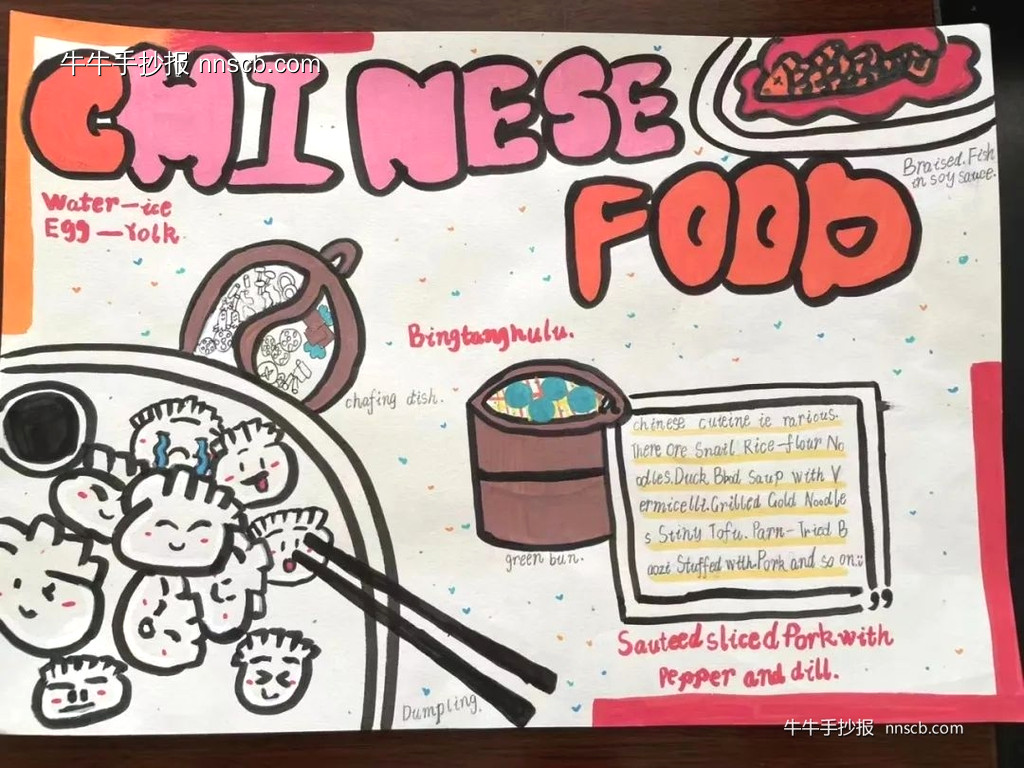 牛牛手抄报 nnscb.com
CHINESE
FOOD
Braised.Fish
in soy sauce.
Water-ice
Egg-Yolk
Bingtanghulu.
chafing dish.
chinese cuteine ie rarious.
There are Snail Rice-flour No
odles.Duck Blood Soup with V
ermicelli.Grilled Cold Noodle
s Stiny Tofu. Parn-Tried B
aozi Stuffed with Pork and so on
green bun.
Sauteed sliced Pork with
Pepper and dill.
Dumpling.
牛牛手抄报 nnscb.com